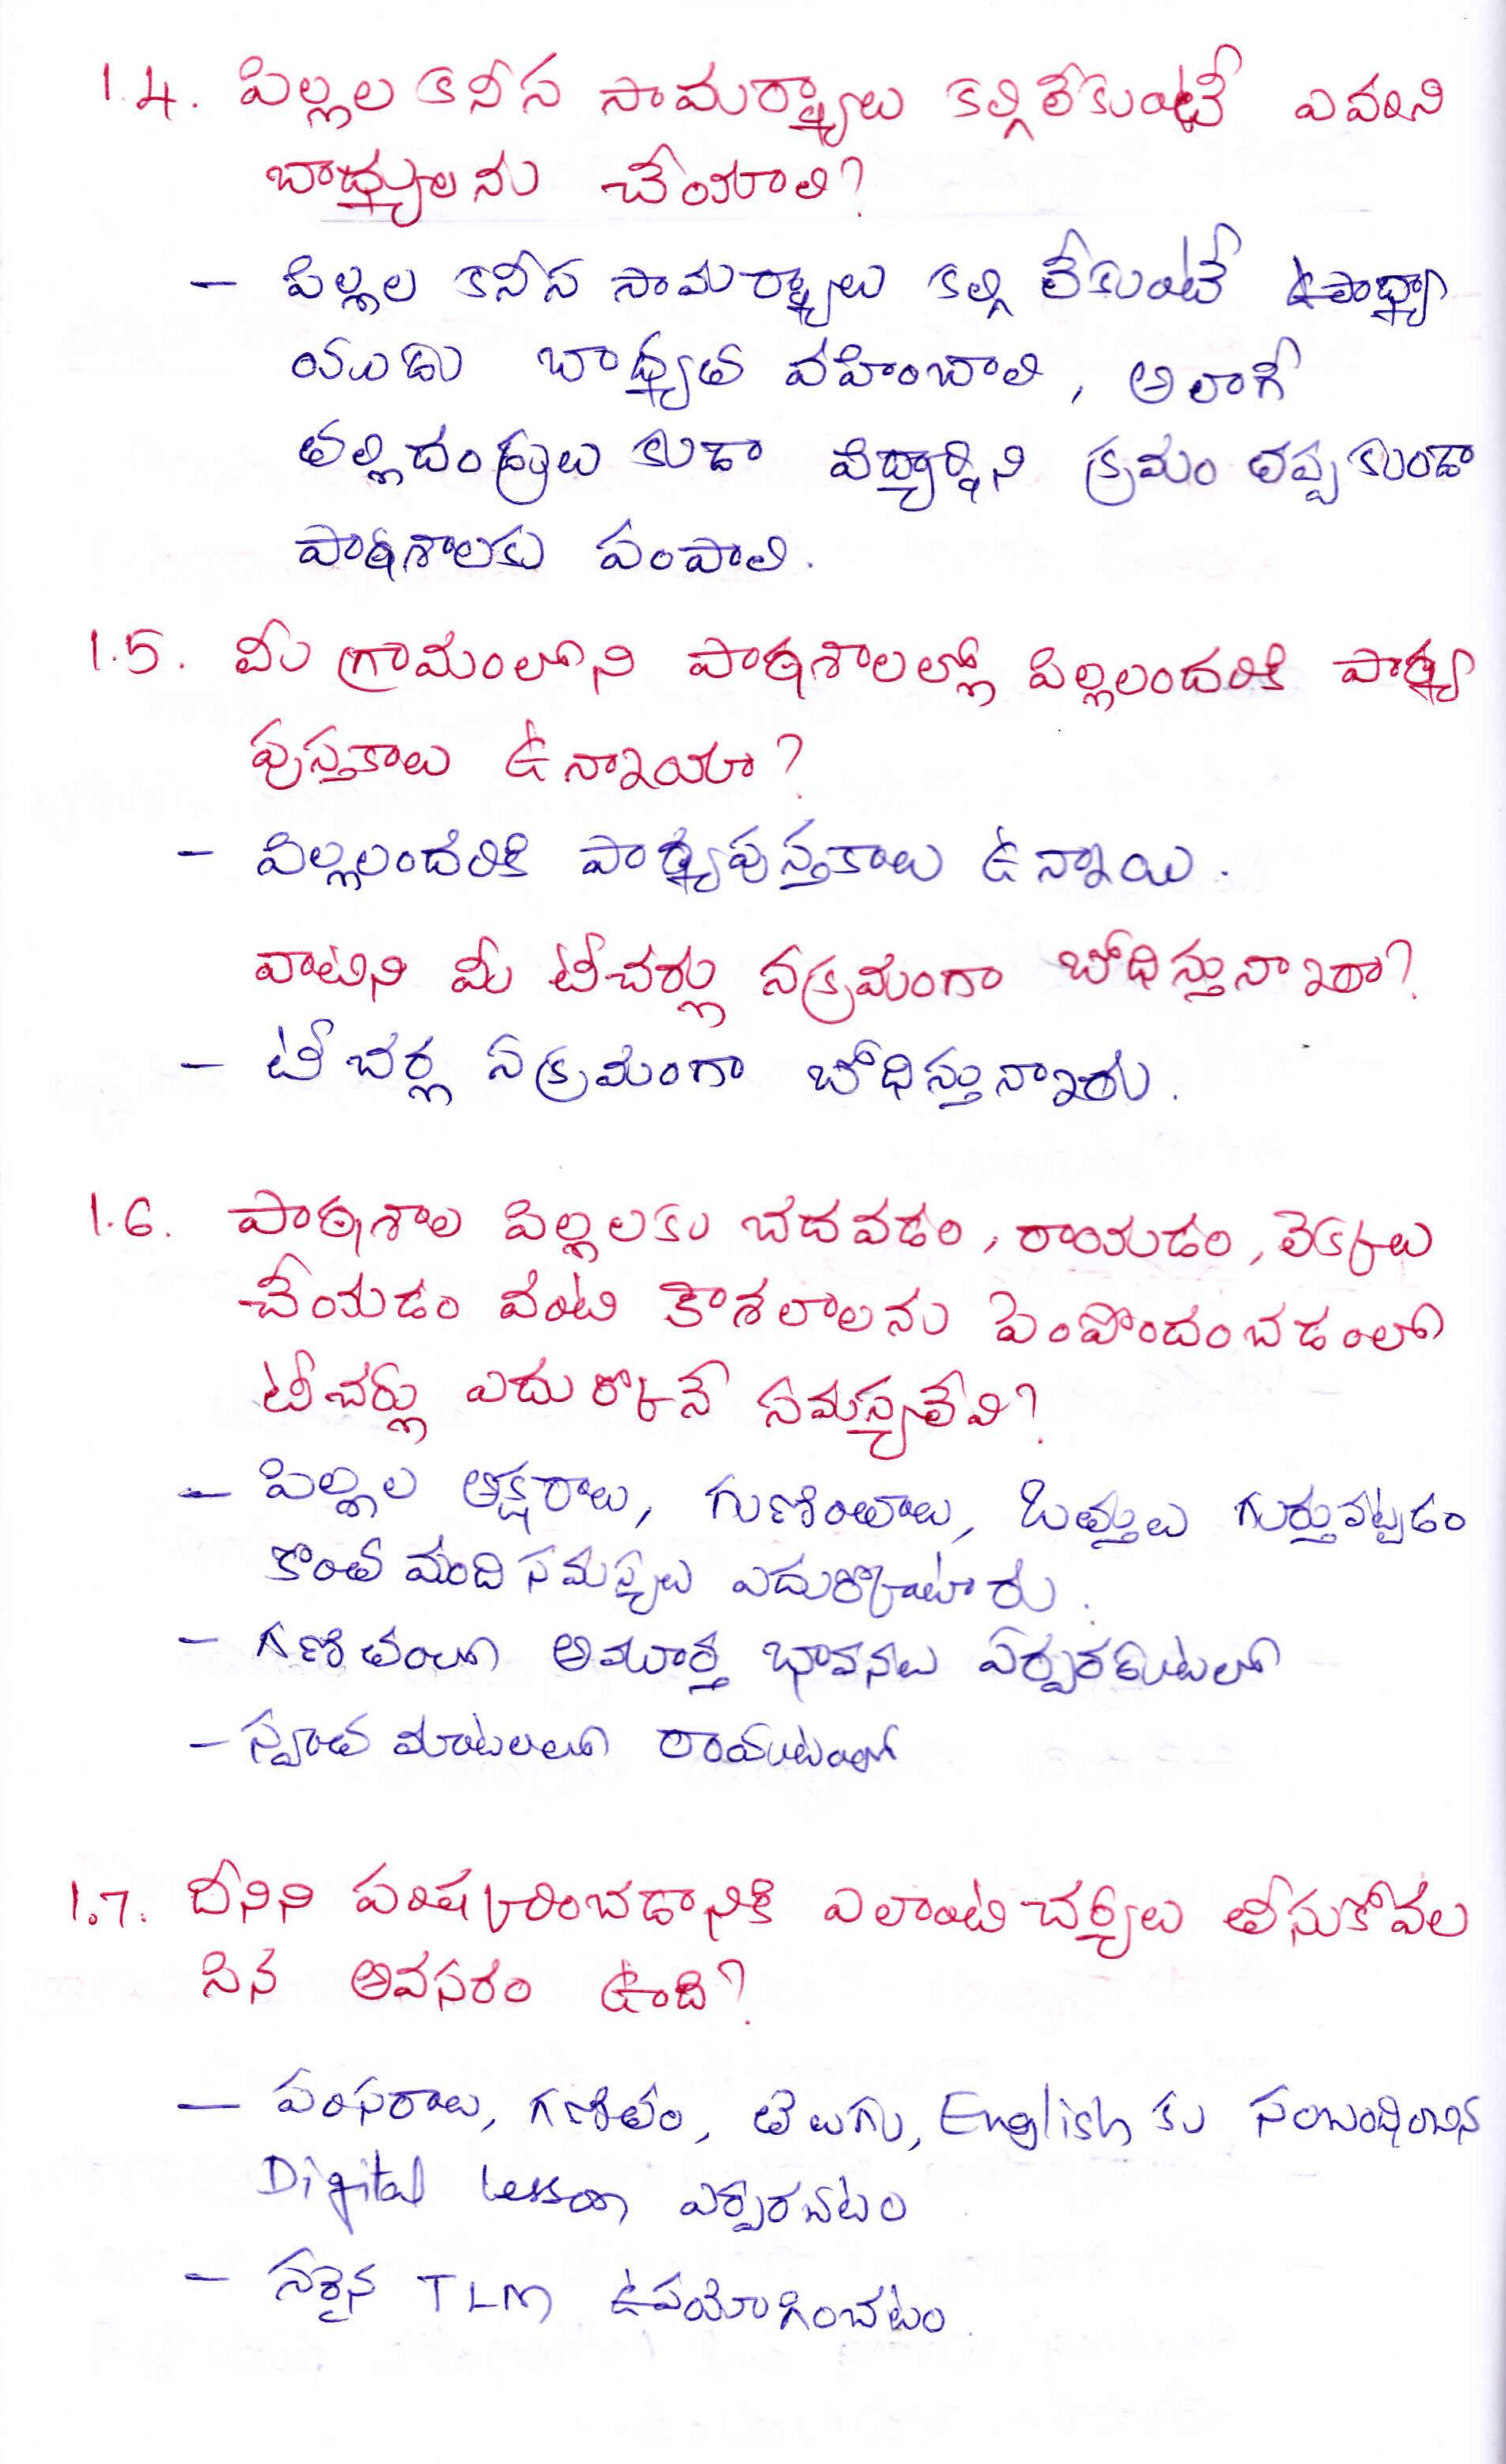 1.4. పిల్లల కనీస సామర్థ్యాలు కల్గిలేకుంటే ఎవరిని
బాధ్యులను చేయాలి?
- పిల్లల కనీస సామర్థ్యాలు కల్గి లేకుంటే ఉపాధ్యా
యుడు బాధ్యత వహించాలి, అలాగే
తల్లిదండ్రులు కుడా విద్యార్థిని క్రమం తప్పకుండా
పాఠశాలకు పంపాలి.
1.5. మీ గ్రామంలోని పాఠశాలల్లో పిల్లలందరికి పాఠ్య
పుస్తకాలు ఉన్నాయా?
- పిల్లలందరికి పాఠ్యపుస్తకాలు ఉన్నాయి.
వాటిని మీ టీచర్లు సక్రమంగా బోధిస్తునారా?
- టీచర్ల సక్రమంగా బోధిస్తున్నారు.
1.6. పాఠశాల పిల్లలకు చదవడం, రాయడం, లెక్కలు
చేయడం వంటి కౌశలాలను పెంపొందించడంలో
టీచర్లు ఎదుర్కొనే సమస్యలేవి?
- పిల్లల అక్షరాలు, గుణింతాలు, ఒత్తులు గుర్తుపట్టడం
కొంత మంది సమస్యలు ఎదుర్కొంటారు.
- గణితంలో అమూర్త భావనలు ఏర్పరచుటలో
- స్వంత మాటలలో రాయుటంలో
1.7. దీనిని పరిష్కరించడానికి ఎలాంటి చర్యలు తీసుకోవల
సిన అవసరం ఉంది?
- పరిసరాలు, గణితం, తెలుగు, English కు సంబంధించిన
Digital lesson ఏర్పరచటం
- సరైన TLM ఉపయోగించటం